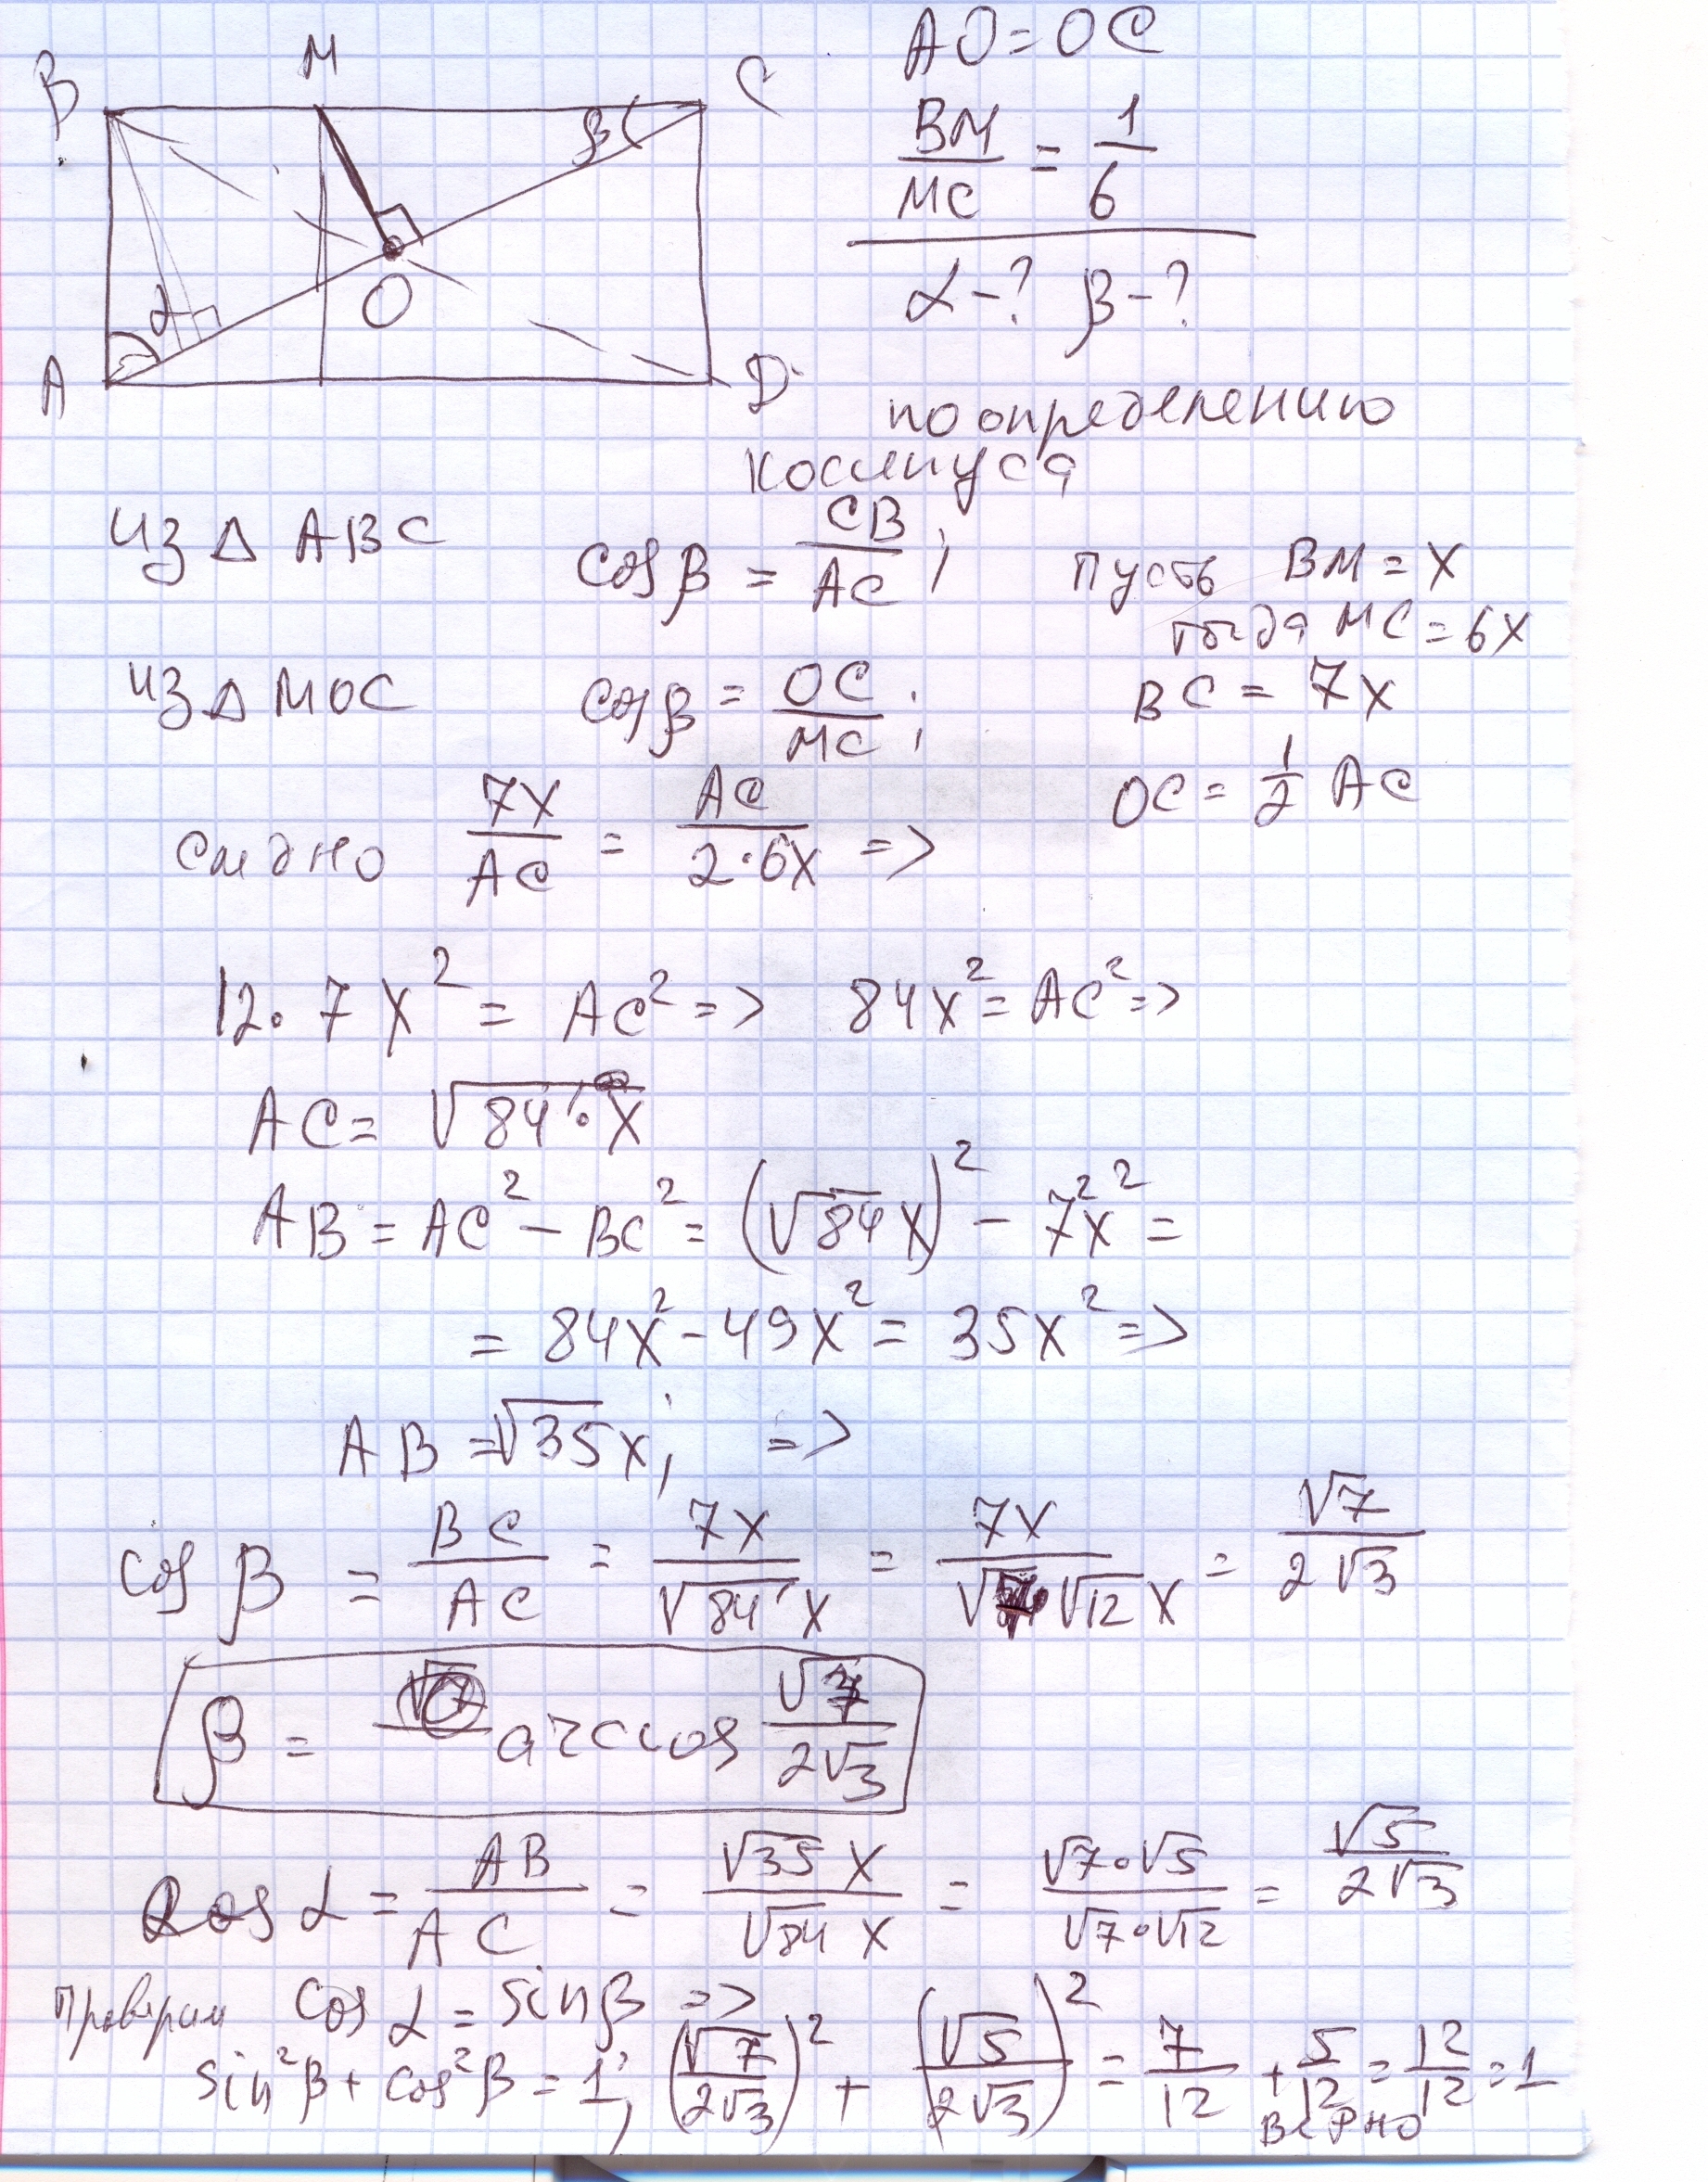 B M C
β
α
O
A D
AO = OC
BM/MC = 1/6
α - ? β - ?
по определению
косинуса
из Δ ABC cos β = CB/AC ; пусть BM = x
тогда MC = 6x
из Δ MOC cos β = OC/MC ; BC = 7x
OC = 1/2 AC
7x/AC = AC/(2·6x) =>
12·7x² = AC² => 84x² = AC² =>
AC = √84·x
AB = AC² - BC² = (√84 x)² - 7²x² =
= 84x² - 49x² = 35x² =>
AB = √35x; =>
cos β = BC/AC = 7x/(√84 x) = 7x/(√7 √12 x) = √7/(2√3)
β = arccos √7/(2√3)
cos α = AB/AC = √35 x/(√84 x) = √7·√5/(√7·√12) = √5/(2√3)
проверим cos α = sin β =>
sin²β + cos²β = 1; (√7/(2√3))² + (√5/(2√3))² = 7/12 + 5/12 = 12/12 = 1
верно